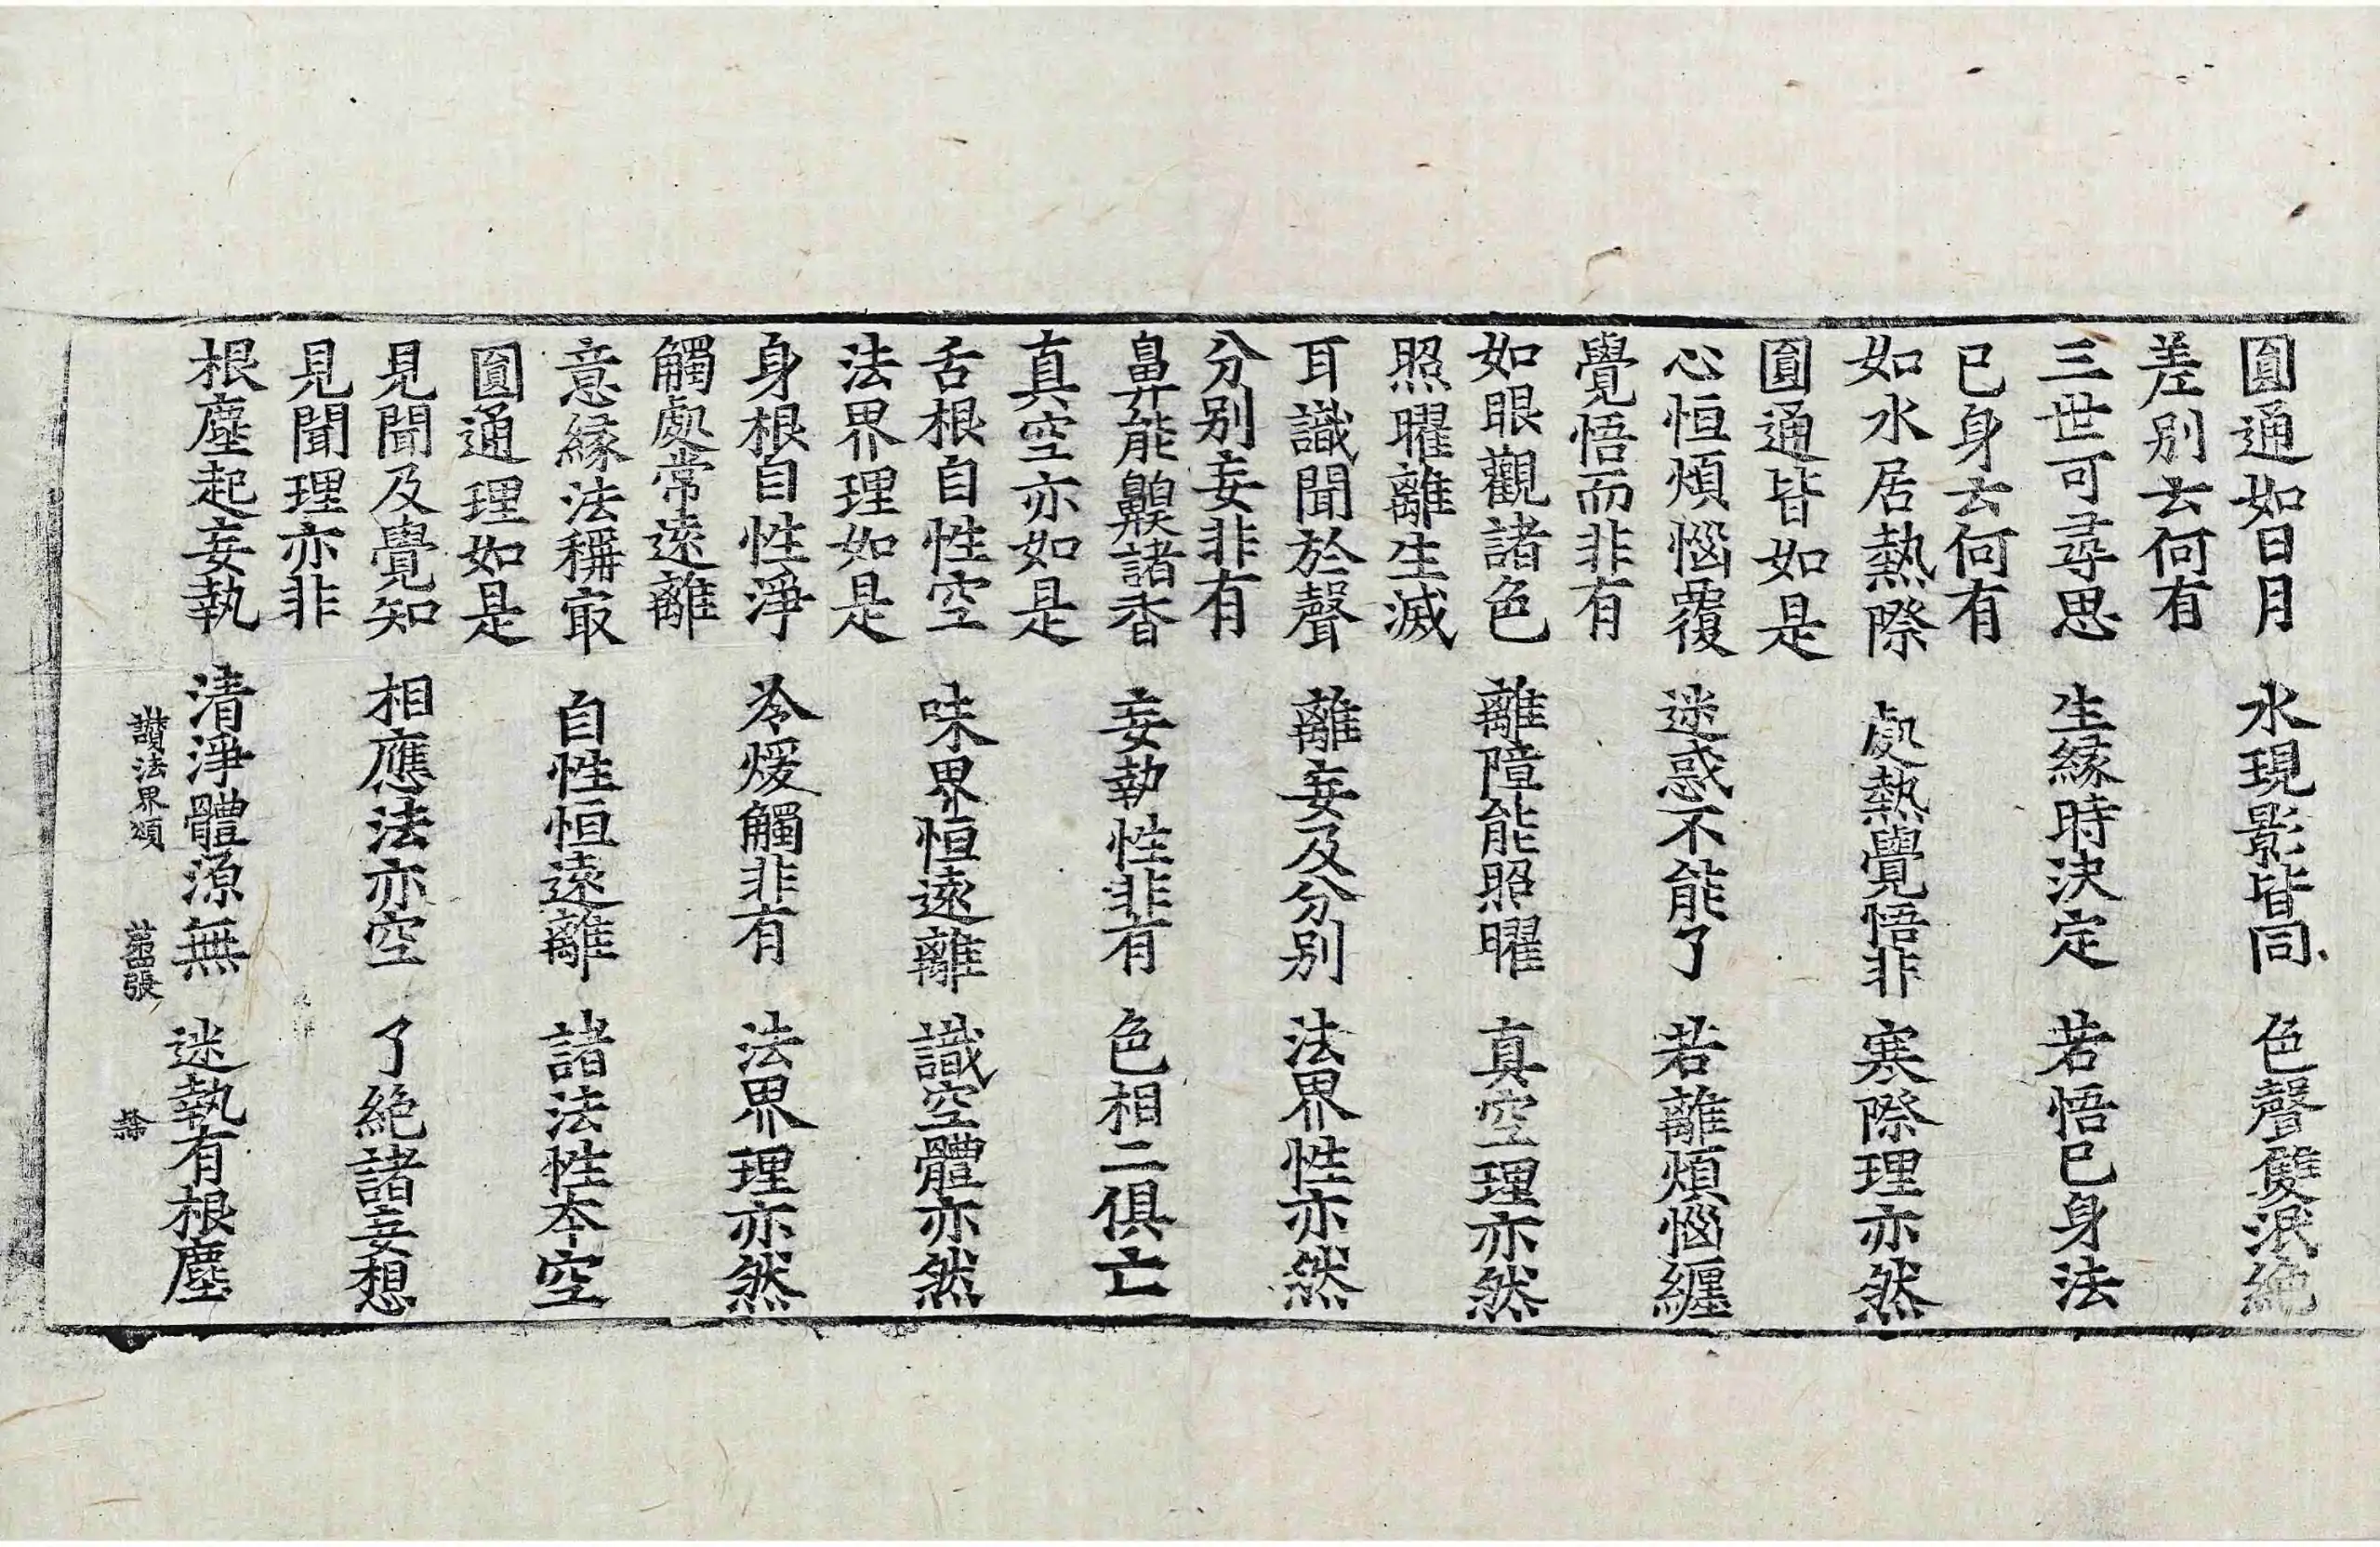 圓通如日月　水現影皆同　色聲雙泯絶
差別去何有
三世可尋思　生緣時決定　若悟已身法
已身去何有
如水居熱際　處熱覺悟非　寒際理亦然
圓通皆如是
心恒煩惱覆　迷惑不能了　若離煩惱纏
覺悟而非有
如眼觀諸色　離障能照曜　真空理亦然
照曜離生滅
耳識聞於聲　離妄及分別　法界性亦然
分別妄非有
鼻能齅諸香　妄執性非有　色相二俱亡
真空亦如是
舌根自性空　味界恒遠離　識空體亦然
法界理如是
身根自性淨　冷煖觸非有　法界理亦然
觸處常遠離
意緣法稱冣　自性恒遠離　諸法性本空
圓通理如是
見聞及覺知　相應法亦空　了絶諸妄想
見聞理亦非
根塵起妄執　清淨體源無　迷執有根塵
讚法界頌　第四張